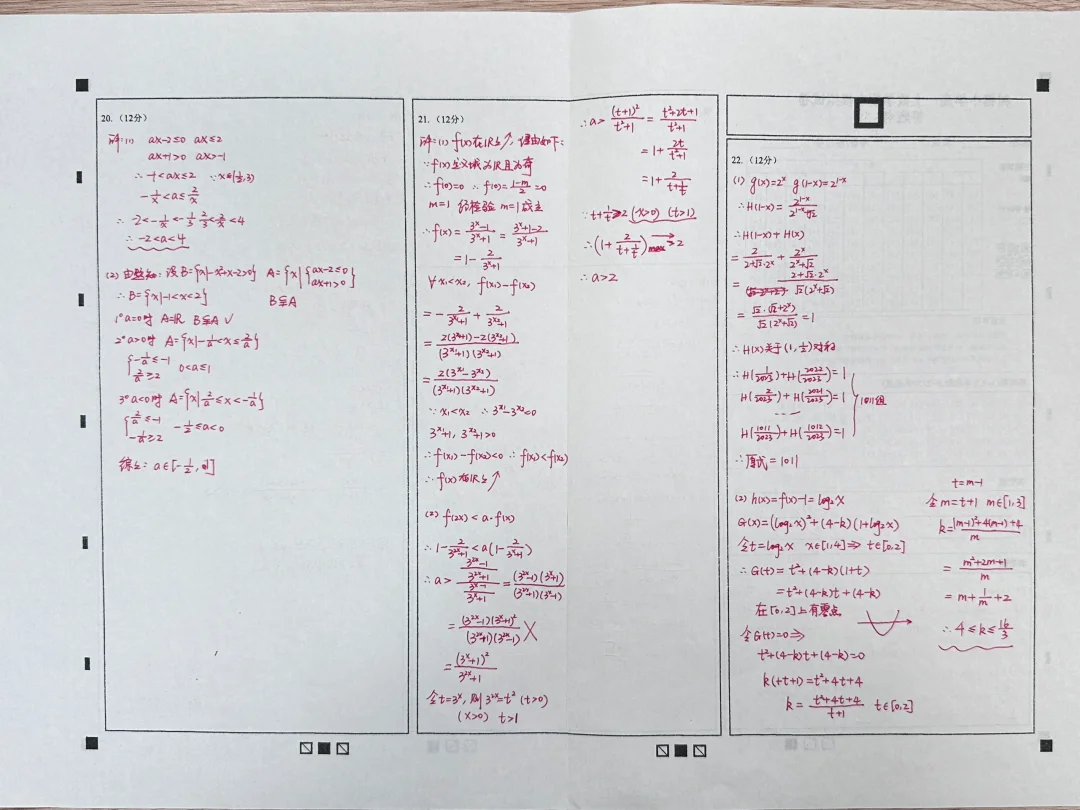 20. (12分)
解:(1) ax-2≤0 ax≤2
ax+1>0 ax>-1
∴ -1<ax≤2 ∵x∈(1/2,3)
-1/x<a≤2/x
∴ -2<-1/x<-1/3 2/3<2/x<4
∴ -2<a<4
(2) 由题知: 设B={x|-x²+x+2>0} A={x|{ax-2≤0 ax+1>0}
∴ B={x|-1<x<2} B⫋A
1° a=0时 A=R B⫋A √
2° a>0时 A={x|-1/a<x≤2/a}
{-1/a≤-1 2/a≥2 0<a≤1
3° a<0时 A={x|2/a≤x<-1/a}
{2/a≤-1 -1/a≥2 -1/2≤a<0
综上: a∈[-1/2, 1]
21. (12分)
解:(1) f(x)在R上↗, 理由如下:
∵f(x)定义域为R且为奇
∴f(0)=0 ∴f(0)=(1-m)/2=0
m=1 经检验 m=1成立
∴f(x)=(3^x-1)/(3^x+1)=(3^x+1-2)/(3^x+1)
=1-2/(3^x+1)
∀x₁<x₂, f(x₁)-f(x₂)
=-2/(3^x₁+1)+2/(3^x₂+1)
=(2(3^x₁+1)-2(3^x₂+1))/((3^x₁+1)(3^x₂+1))
=2(3^x₁-3^x₂)/((3^x₁+1)(3^x₂+1))
∵x₁<x₂ ∴3^x₁-3^x₂<0
3^x₁+1, 3^x₂+1>0
∴f(x₁)-f(x₂)<0 ∴f(x₁)<f(x₂)
∴f(x)在R上↗
(2) f(2x)<a·f(x)
∴1-2/(3^2x+1)<a(1-2/(3^x+1))
∴a>((3^2x-1)/(3^2x+1))/((3^x-1)/(3^x+1))=(3^2x-1)(3^x+1)/((3^2x+1)(3^x-1))
=(3^2x-1)(3^x+1)²/((3^2x+1)(3^2x-1)) X
=(3^x+1)²/(3^2x+1)
令t=3^x, 则3^2x=t² (t>0)
(x>0) t>1
∴a>(t+1)²/(t²+1)=(t²+2t+1)/(t²+1)
=1+2t/(t²+1)
=1+2/(t+1/t)
∵t+1/t>2 (x>0) (t>1)
∴(1+2/(t+1/t))max→2
∴a>2
22. (12分)
(1) g(x)=2^x g(1-x)=2^(1-x)
∴H(1-x)=2^(1-x)/(2^(1-x)+√2)
∴H(1-x)+H(x)
=2/(2+√2·2^x)+2^x/(2^x+√2)
=(2+√2·2^x)/(√2(2^x+√2))
=√2·(√2+2^x)/(√2(2^x+√2))=1
∴H(x)关于(1,1/2)对称
∴H(1/2023)+H(2022/2023)=1
H(2/2023)+H(2021/2023)=1
……
H(1011/2023)+H(1012/2023)=1
1011组
∴原式=1011
(2) h(x)=f(x)-1=log₂x
G(x)=(log₂x)²+(4-k)(1+log₂x)
令t=log₂x x∈[1,4]⇒t∈[0,2]
∴G(t)=t²+(4-k)(1+t)
=t²+(4-k)t+(4-k)
在[0,2]上有零点
令G(t)=0⇒
t²+(4-k)t+(4-k)=0
k(t+1)=t²+4t+4
k=(t²+4t+4)/(t+1) t∈[0,2]
t=m-1
令m=t+1 m∈[1,3]
k=((m-1)²+4(m-1)+4)/m
=(m²+2m+1)/m
=m+1/m+2
∴4≤k≤16/3